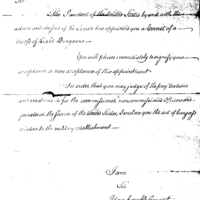 Sir
The President of the United States by and with the
advice and consent of the Senate has appointed you a Cornet of a
troop of Light Dragoons
You will please immediately to signify your
acceptance or non acceptance of this appointment
In order that you may judge of the pay rations
and emoluments for the commissioned, non commissioned Officers and
privates in the service of the United States, I enclose you the act of Congress
relative to the military establishment
I am
Sir
Your humble Servant